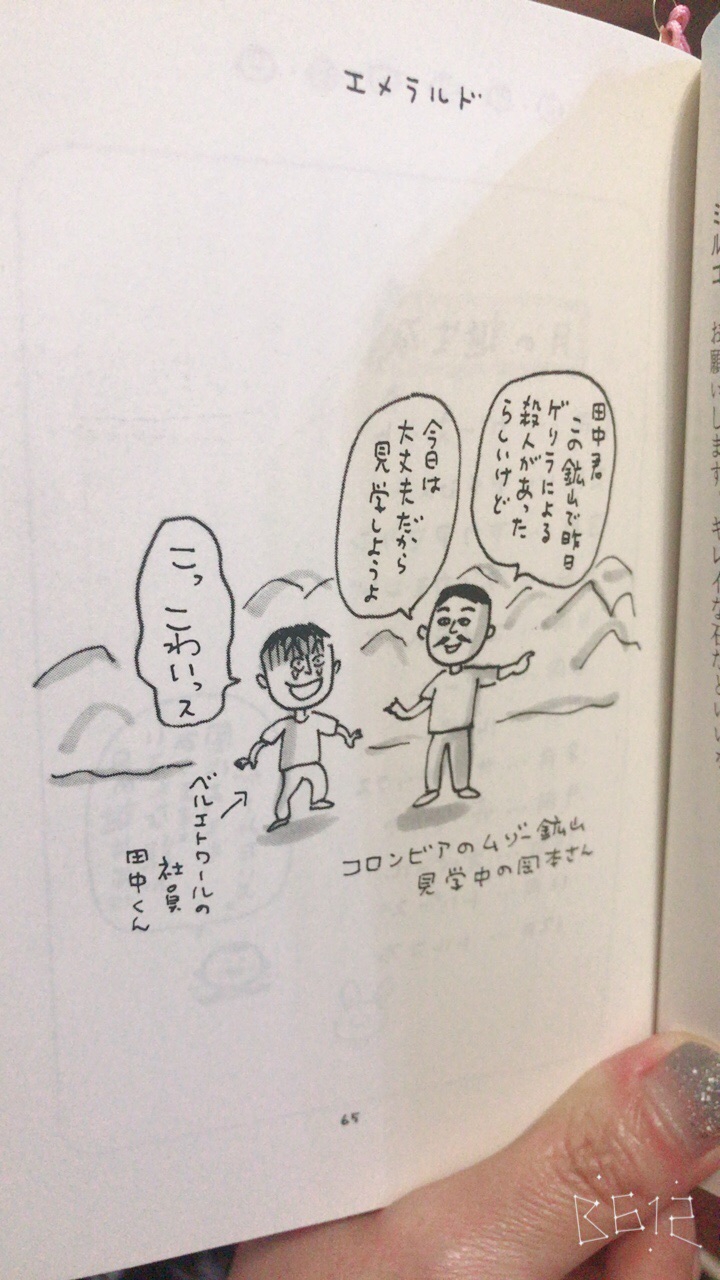 エメラルド
田中君
この鉱山で昨日
ゲリラによる
殺人があった
らしいけど
今日は
大丈夫だから
見学しようよ
こっ こわいっス
ベルエトワールの
社員
田中くん
コロンビアのムゾー鉱山
見学中の岡本さん
65
ミルエ
お願いします
キレイな石だといい
B612